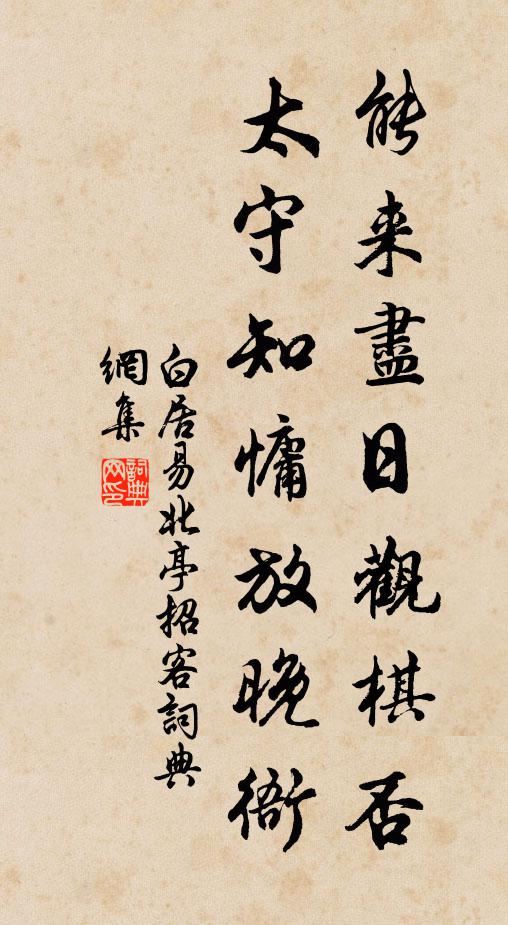 能来盡日觀棋否
太守知慵放晚衙
白居易北亭招客詞典
網集
詞典
网印